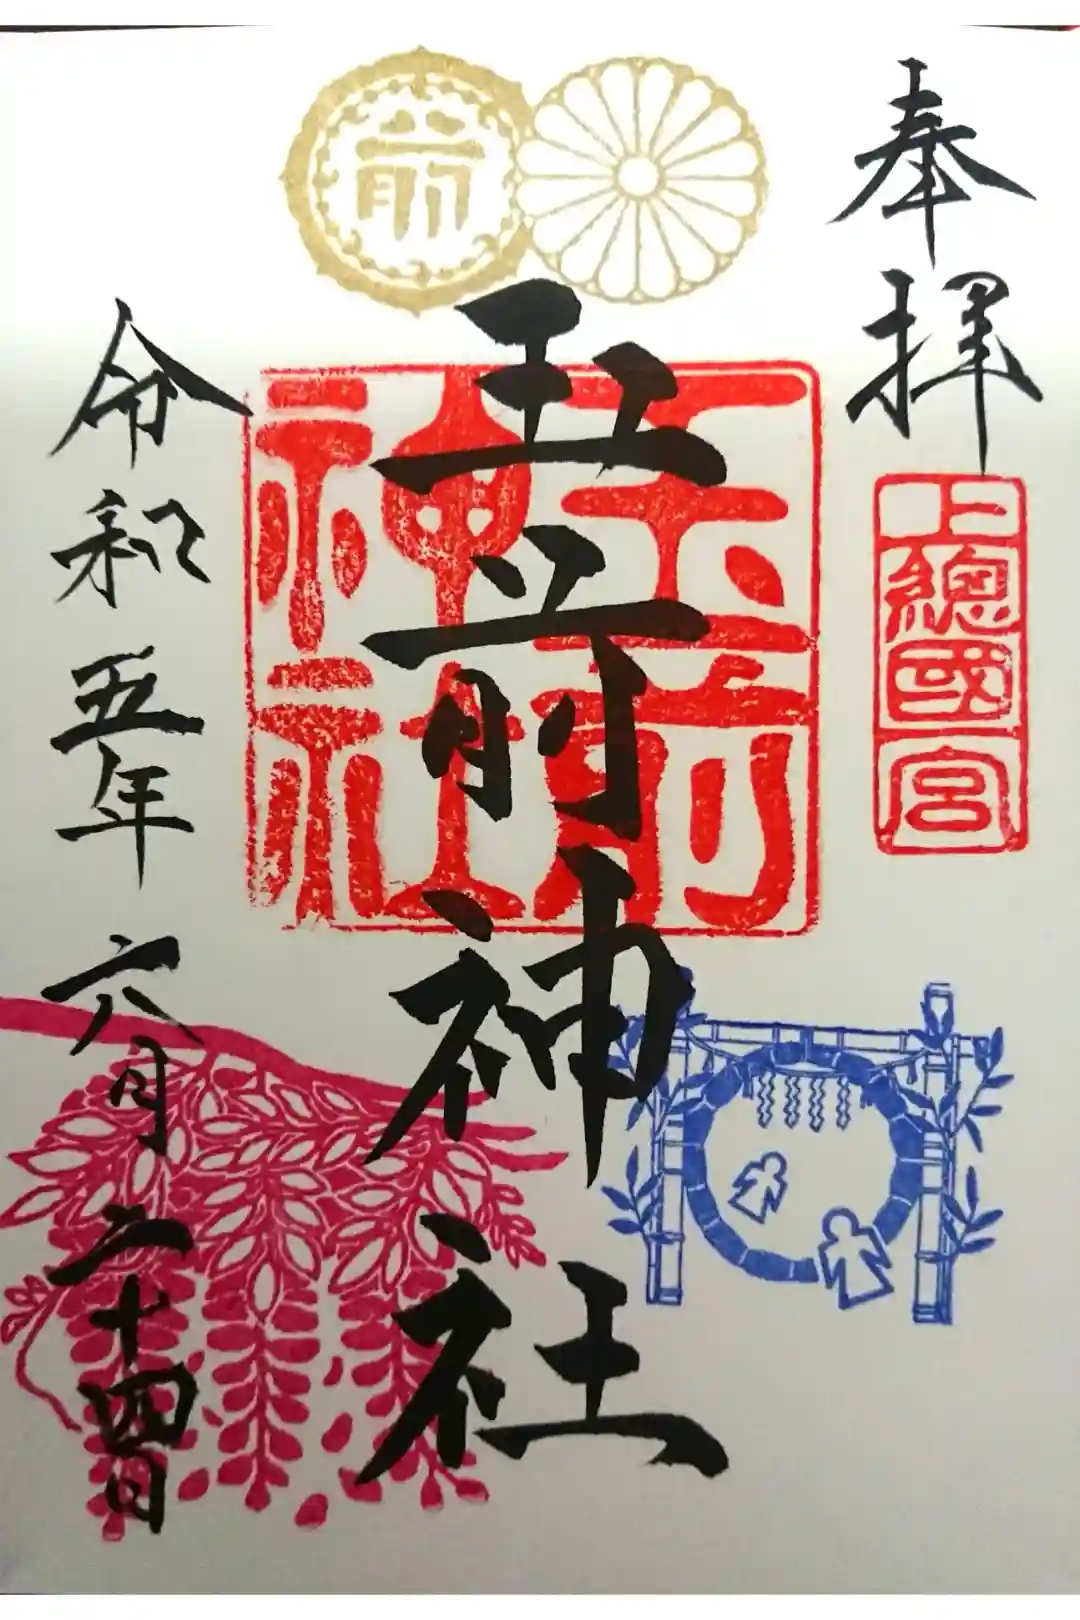 奉拝
上總國一宮
前
玉前神社
玉前神社
令和五年六月二十四日